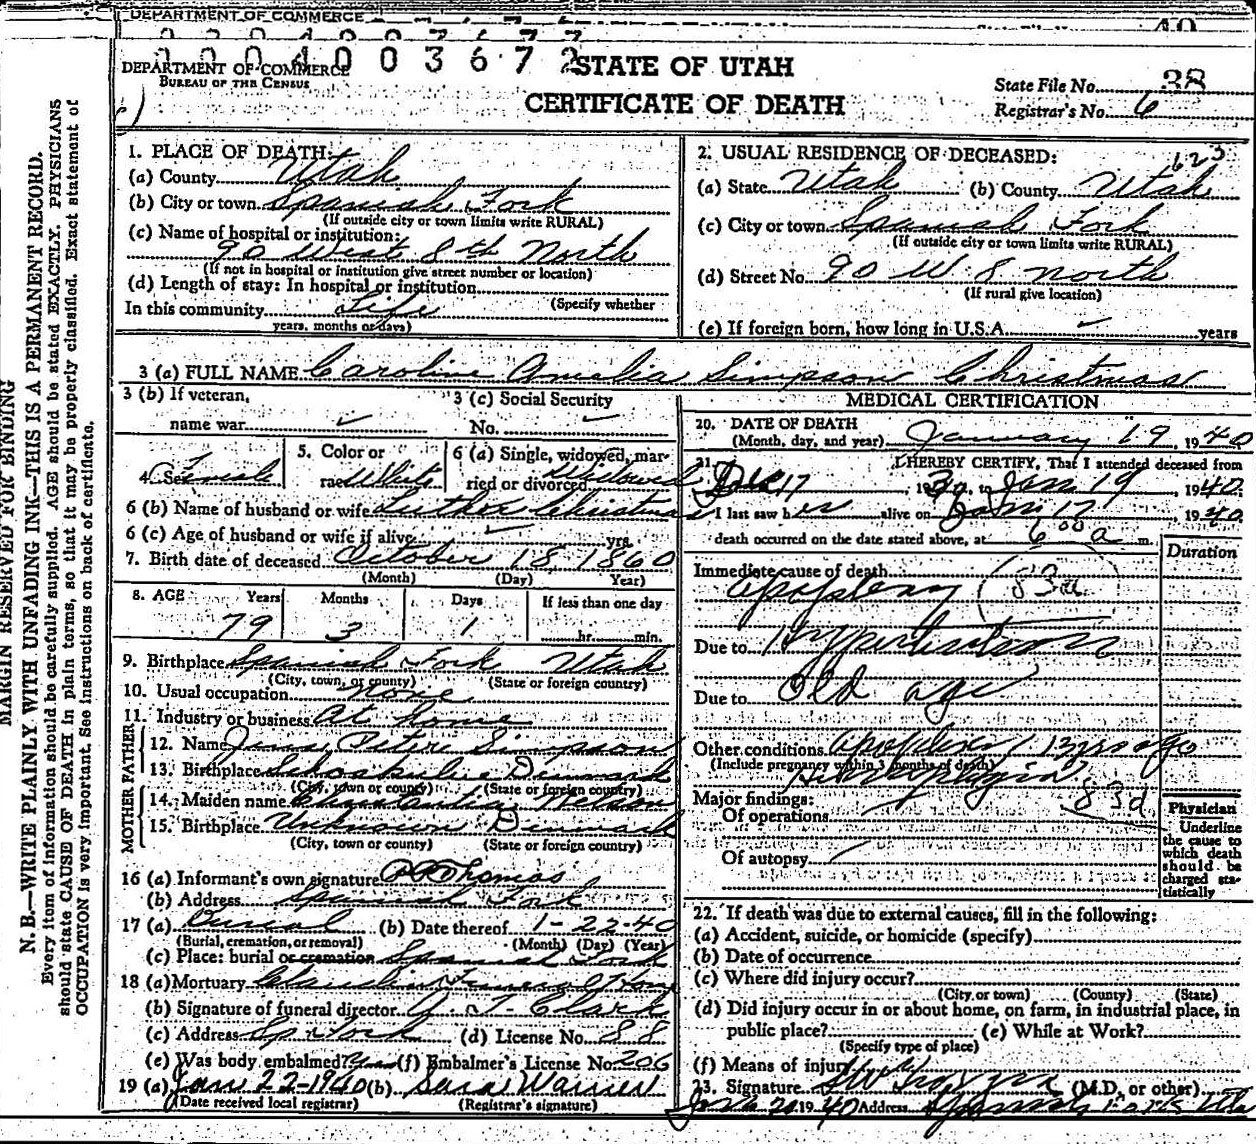 DEPARTMENT OF COMMERCE
40
0 0 4 0 0 3 6 7 2
STATE OF UTAH
DEPARTMENT OF COMMERCE
BUREAU OF THE CENSUS
CERTIFICATE OF DEATH
State File No. 38
Registrar's No. 6
MARGIN RESERVED FOR BINDING
N. B.—WRITE PLAINLY WITH UNFADING INK—THIS IS A PERMANENT RECORD.
Every item of information should be carefully supplied. AGE should be stated EXACTLY. PHYSICIANS
should state CAUSE OF DEATH in plain terms, so that it may be properly classified. Exact statement of
OCCUPATION is very important. See instructions on back of certificate.
1. PLACE OF DEATH:
(a) County Utah
(b) City or town Spanish Fork
(If outside city or town limits write RURAL)
(c) Name of hospital or institution:
90 West 8th North
(If not in hospital or institution give street number or location)
(d) Length of stay: In hospital or institution
(Specify whether
In this community Life
years, months or days)
2. USUAL RESIDENCE OF DECEASED:
623
(a) State Utah (b) County Utah
(c) City or town Spanish Fork
(If outside city or town limits write RURAL)
(d) Street No. 90 W. 8 North
(If rural give location)
(e) If foreign born, how long in U.S.A. years
3 (a) FULL NAME Caroline Amelia Simpson Christmas
3 (b) If veteran,
name war
3 (c) Social Security
No.
4. Sex Female
5. Color or
race White
6 (a) Single, widowed, mar-
ried or divorced Widowed
6 (b) Name of husband or wife Luther Christmas
6 (c) Age of husband or wife if alive yrs.
7. Birth date of deceased October 18, 1860
(Month) (Day) Year)
8. AGE Years Months Days If less than one day
79 3 1 hr. min.
9. Birthplace Spanish Fork Utah
(City, town, or county) (State or foreign country)
10. Usual occupation None
11. Industry or business At home
FATHER
12. Name Jens Peter Simpson
13. Birthplace Denmark
(City, town or county) (State or foreign country)
MOTHER
14. Maiden name Nelson
15. Birthplace Unknown Denmark
(City, town or county) (State or foreign country)
16 (a) Informant's own signature Thomas
(b) Address Spanish Fork
17 (a) Burial (b) Date thereof 1-22-40
(Burial, cremation, or removal) (Month) (Day) (Year)
(c) Place: burial or cremation Spanish Fork
18 (a) Mortuary Claudin Funeral Home
(b) Signature of funeral director A. T. Clark
(c) Address Sp Fork (d) License No. 88
(e) Was body embalmed? Yes (f) Embalmer's License No. 206
19 (a) Jan 22-1940 (b) Sara Warner
(Date received local registrar) (Registrar's signature)
MEDICAL CERTIFICATION
20. DATE OF DEATH
(Month, day, and year) January 19, 1940
21. I HEREBY CERTIFY, That I attended deceased from
Dec 17, 1939, to Jan 19, 1940.
I last saw her alive on Jan 17 1940
death occurred on the date stated above, at 6 00 a m.
Duration
Immediate cause of death
Apoplexy 83a
Due to Hypertension
Due to Old age
Other conditions Apoplexy 13 yrs ago
(Include pregnancy within 3 months of death)
Hemiplegia
Major findings:
Of operations 83d
Of autopsy
Physician
Underline
the cause to
which death
should be
charged sta-
tistically
22. If death was due to external causes, fill in the following:
(a) Accident, suicide, or homicide (specify)
(b) Date of occurrence
(c) Where did injury occur?
(City or town) (County) (State)
(d) Did injury occur in or about home, on farm, in industrial place, in
public place? (e) While at Work?
(Specify type of place)
(f) Means of injury
23. Signature (M.D. or other)
Jan 20 1940 Address Spanish Fork Utah